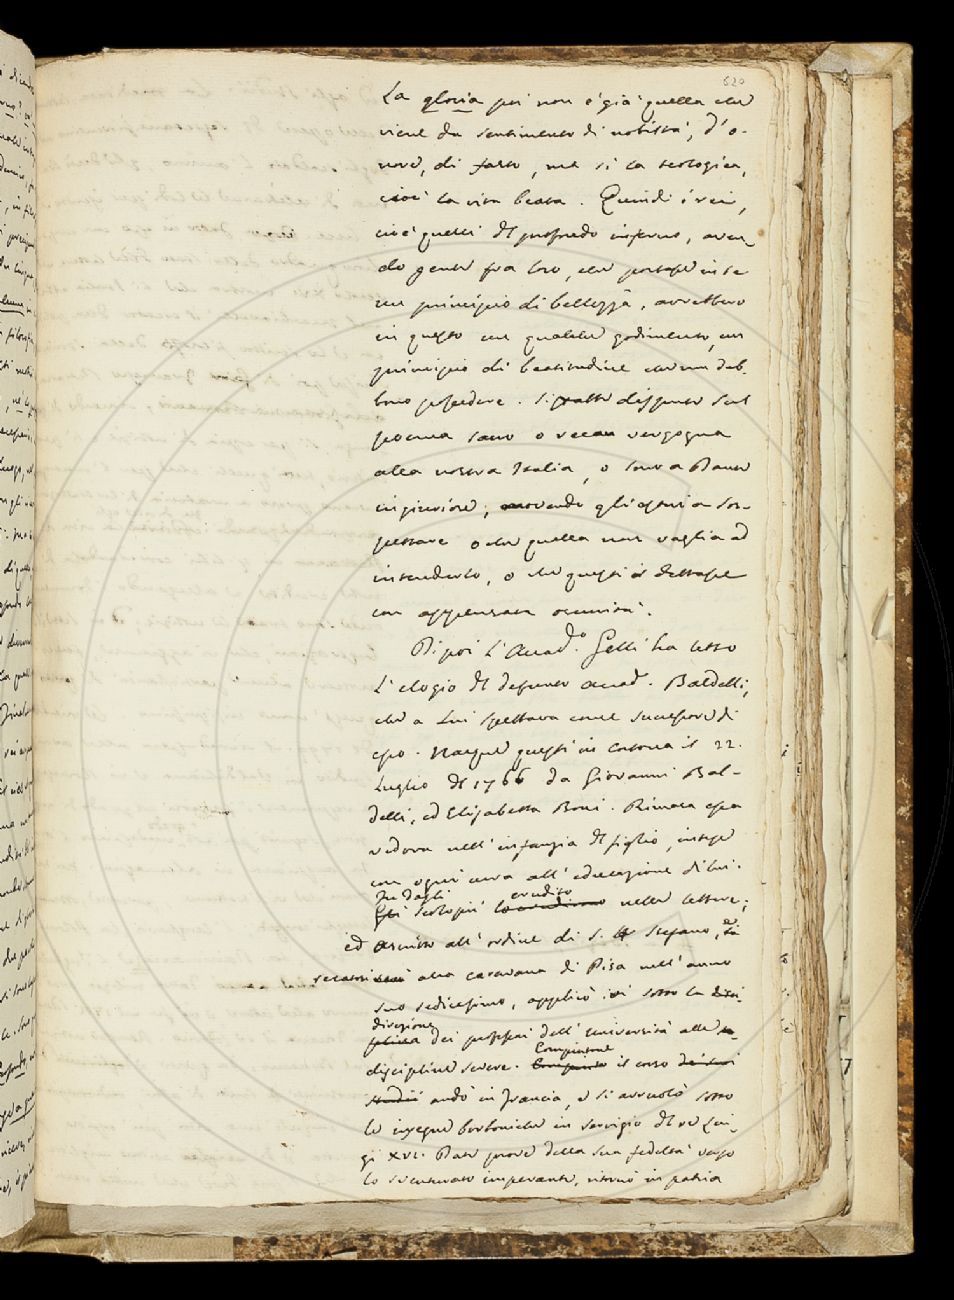 620
La gloria poi non è già quella che
viene da sentimento di nobiltà, d'o-
nore, di fasto, ma sì la teologica,
cioè la vita beata. Quindi i rei,
cioè quelli del profondo inferno, aven-
do gente fra loro, che portasse in se
un principio di bellezza, avrebbero
in questo un qualche godimento, un
principio di beatitudine che non deb-
bono possedere. Sì fatte dispute sul
poema sacro o recan vergogna
alla nostra Italia, o sono a Dante
ingiuriose, movendo gli esteri a sos-
pettare o che quella non vaglia ad
intenderlo, o che questi il dettasse
con appensata oscurità.
Di poi l'Accad.º Gelli ha letto
l'elogio del defunto Accad. Baldelli,
che a lui spettava come successore di
esso. Nacque questi in Cortona il 22.
Luglio del 1766 da Giovanni Bal-
delli, ed Elisabetta Boni. Rimasa essa
vedova nell'infanzia del figlio, intese
con ogni cura all'educazione di lui.
Fu dagli erudito
Scolopii nelle lettere;
ed ascritto all'ordine di S. Stefano, e
recatosi alla carovana di Pisa nell'anno
suo sedicesimo, applicò ivi sotto la
direzione
dei professori dell'Università alle
Compiutone
discipline severe. il corso
andò in Francia, e si arruolò sotto
le insegne borboniche in servigio del re Lui-
gi XVI. Date prove della sua fedeltà verso
lo sventurato imperante, ritornò in patria